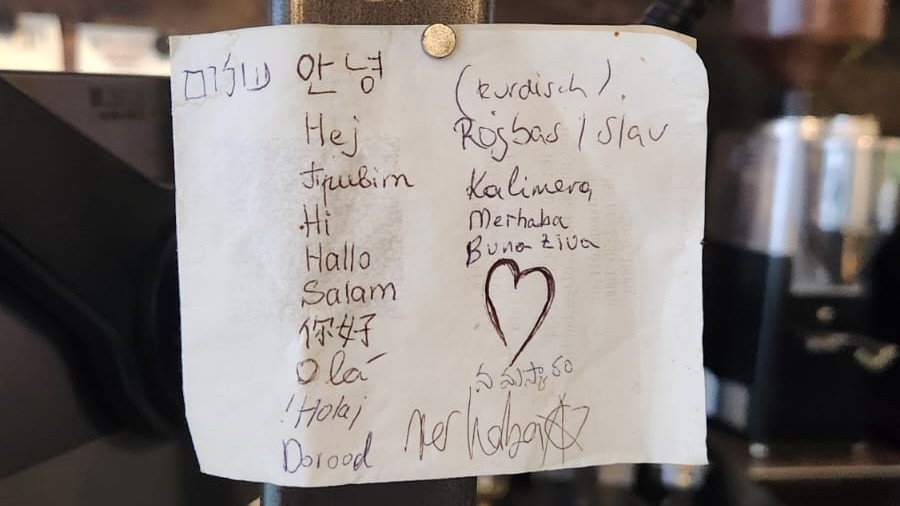 שלום
안녕
Hej
Привіт
Hi
Hallo
Salam
你好
Olá
¡Hola!
Dorood
(kurdisch).
Rojbas / Slav
Kalimera
Merhaba
Buna Ziua
నమస్కారం
merhaba